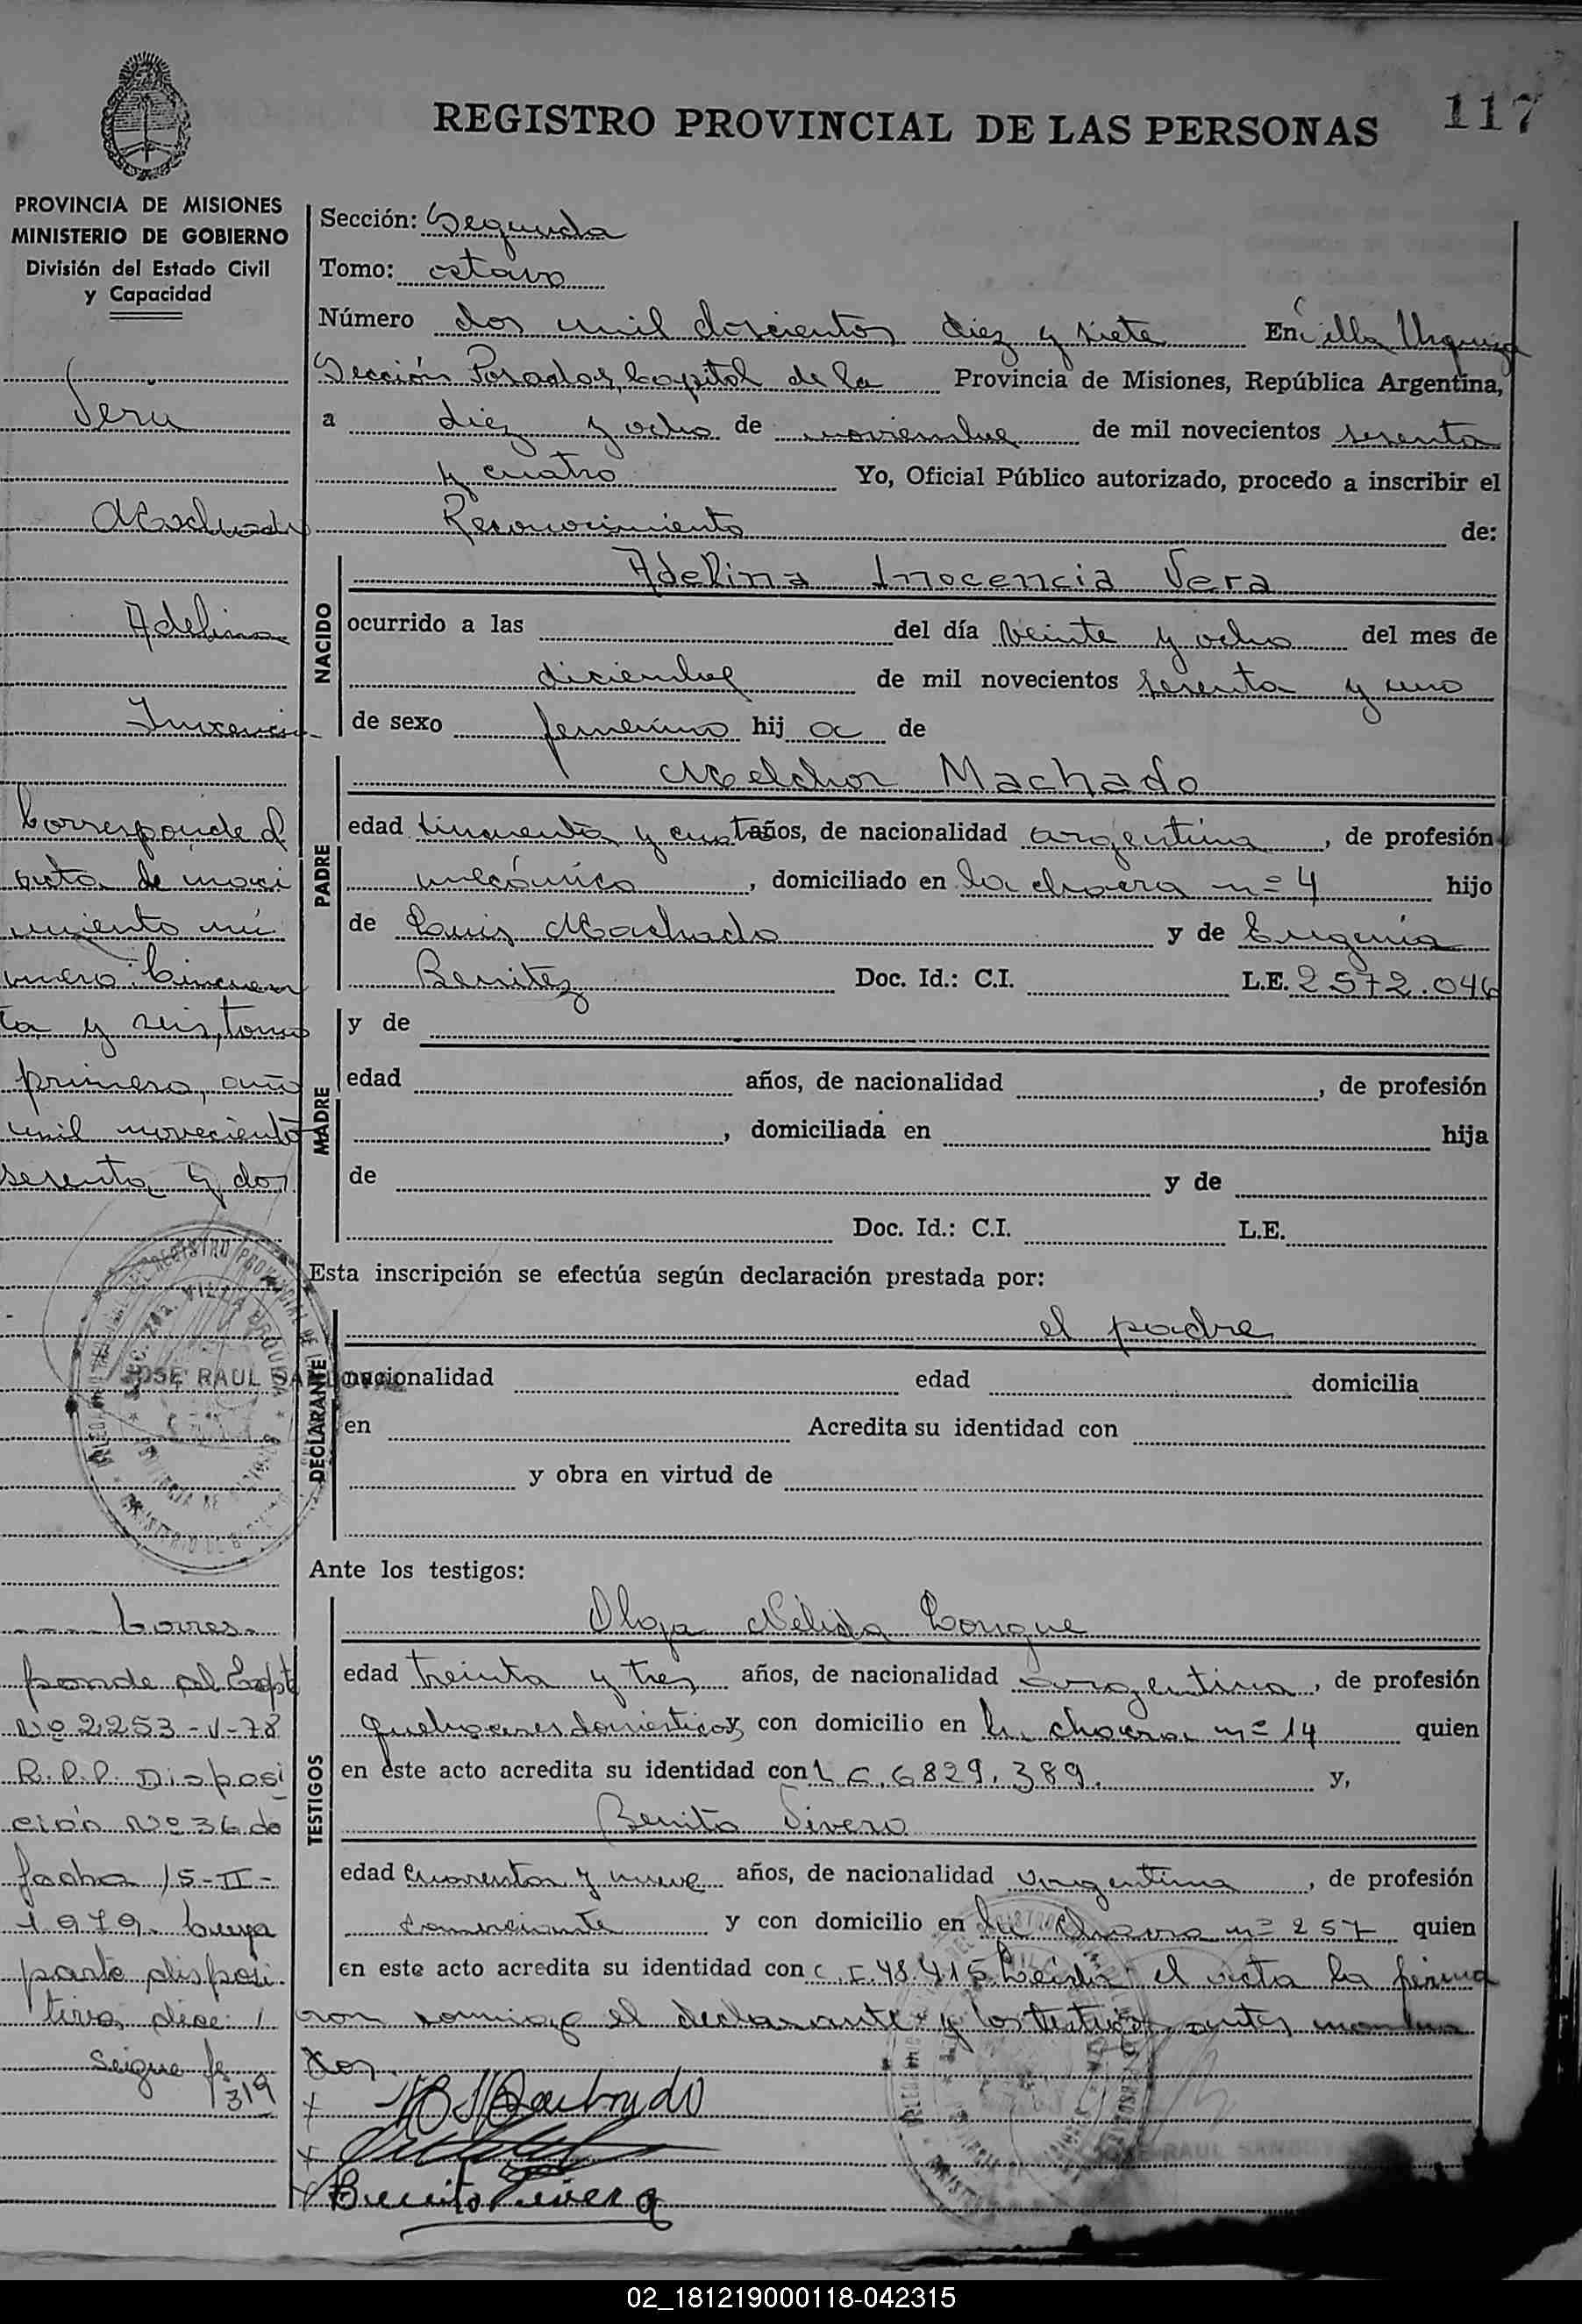 REGISTRO PROVINCIAL DE LAS PERSONAS
117
PROVINCIA DE MISIONES
MINISTERIO DE GOBIERNO
División del Estado Civil
y Capacidad
Vera
Machado
Adelina
Inocencia
Corresponde al
acta de naci
miento nú
mero: Cincuen
ta y seis, tomo
primero, año
mil novecientos
sesenta y dos
JOSE RAUL
---- Corres-
ponde al Expte
Nº 2253-V-78
R.P.P. Disposi
ción Nº 36 de
fecha 15-II-
1979. Cuya
parte disposi-
tiva dice: /
Seigue fs
319
Sección: Segunda
Tomo: octavo
Número dos mil doscientos diez y siete En Villa Urquiza
Sección Posadas, Capital de la Provincia de Misiones, República Argentina,
a diez y ocho de noviembre de mil novecientos sesenta
y cuatro Yo, Oficial Público autorizado, procedo a inscribir el
Reconocimiento de:
NACIDO
Adelina Inocencia Vera
ocurrido a las del día veinte y ocho del mes de
diciembre de mil novecientos sesenta y uno
de sexo femenino hij a de
PADRE
Melchor Machado
edad cincuenta y cuatro años, de nacionalidad argentina, de profesión
mecánico, domiciliado en la chacra nº 4 hijo
de Luis Machado y de Eugenia
Benitez Doc. Id.: C.I. L.E. 2572.046
MADRE
y de
edad años, de nacionalidad , de profesión
, domiciliada en hija
de y de
Doc. Id.: C.I. L.E.
Esta inscripción se efectúa según declaración prestada por:
DECLARANTE
el padre
nacionalidad edad domicilia
en Acredita su identidad con
y obra en virtud de
Ante los testigos:
TESTIGOS
Olga Nélida
edad treinta y tres años, de nacionalidad argentina, de profesión
quehaceres domésticos y con domicilio en la chacra nº 14 quien
en este acto acredita su identidad con L C. 6829.389. y,
Benito Vivero
edad cuarenta y nueve años, de nacionalidad argentina, de profesión
comerciante y con domicilio en la chacra nº 257 quien
en este acto acredita su identidad con C. I. 48.415 Leída el acta la firma
ron conmigo el declarante y los testigos antes nombra
dos.
Machado
Benito Vivero
02_181219000118-042315